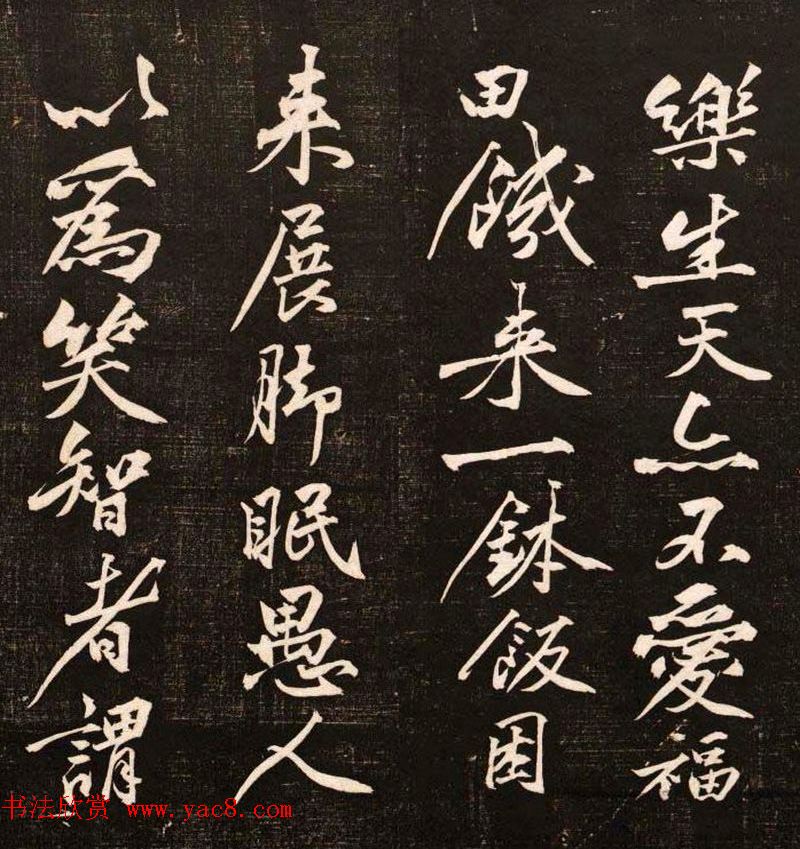 樂生天亦不愛福
田餓来一鉢飯困
来展脚眠愚人
以為笑智者謂
书法欣赏 www.yac8.com